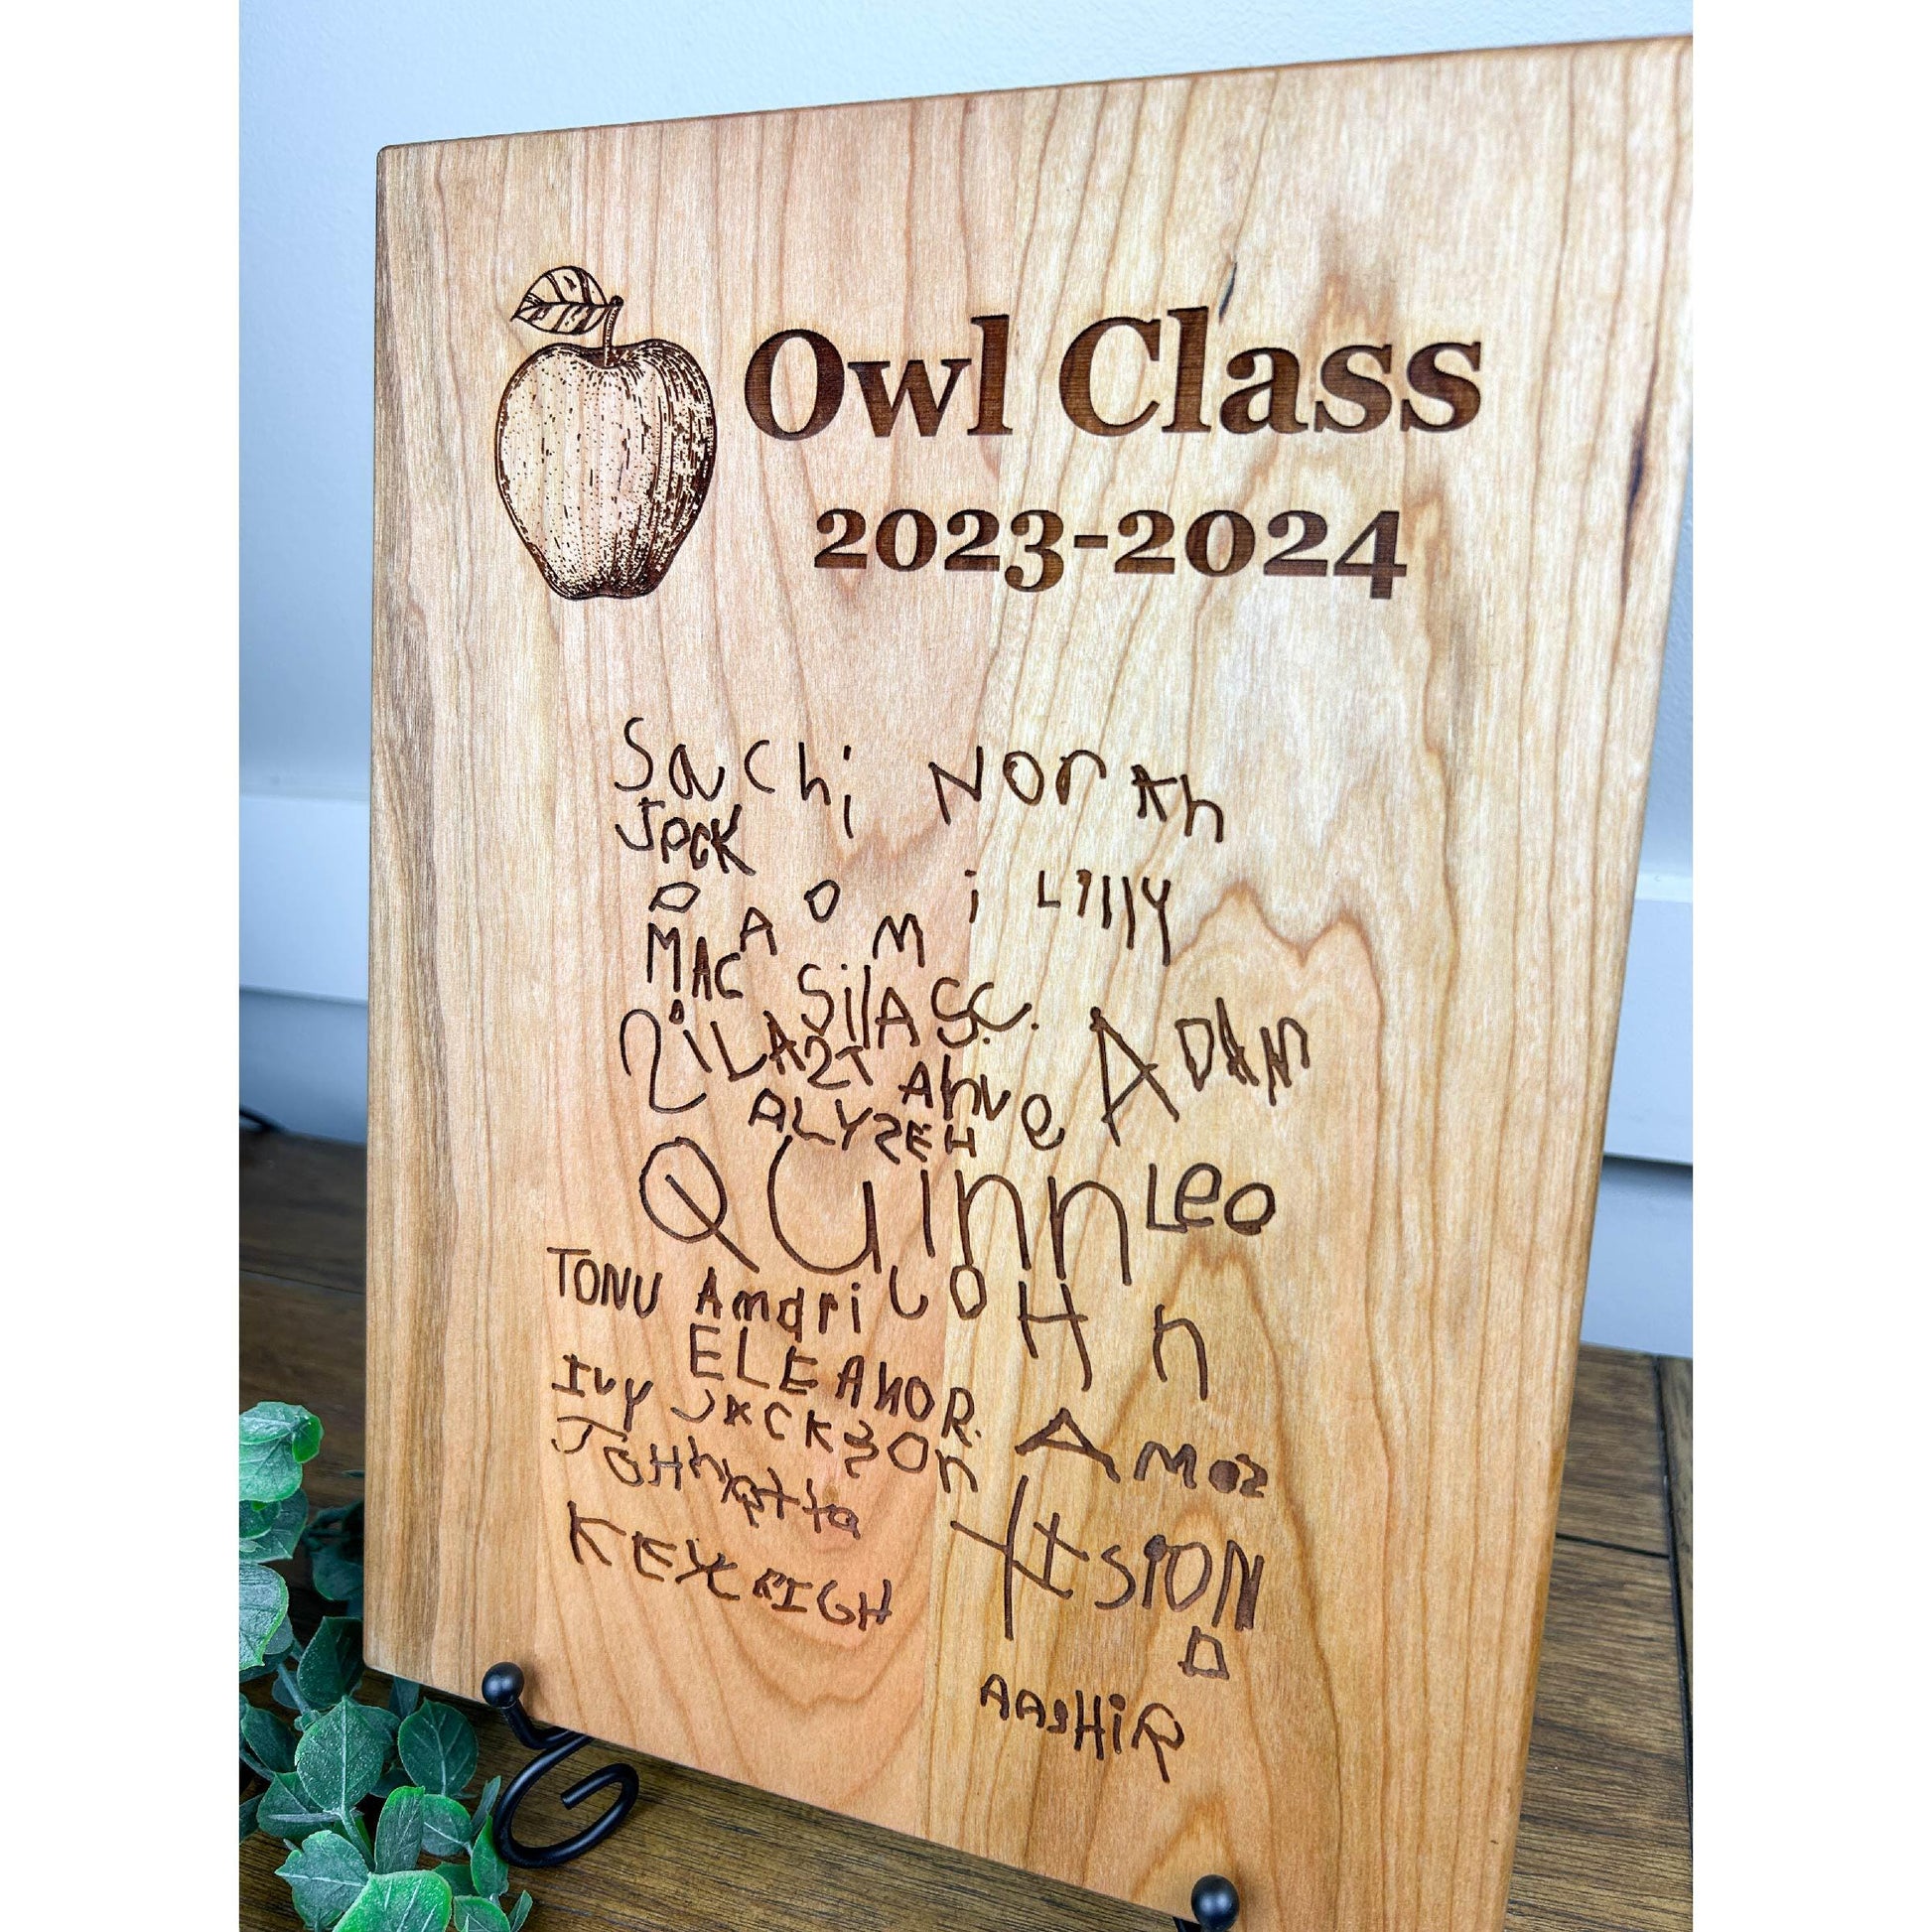 Owl Class
2023-2024
Sachi North
Jack
Naomi LillY
MAC SilAS C.
SiLAS T Ahve ADAM
ALYSEH
QUinn Leo
TONU Amari JOHn
ELEANOR.
IVY JACKSOn AMOS
KEYLEIGH
AASHiR